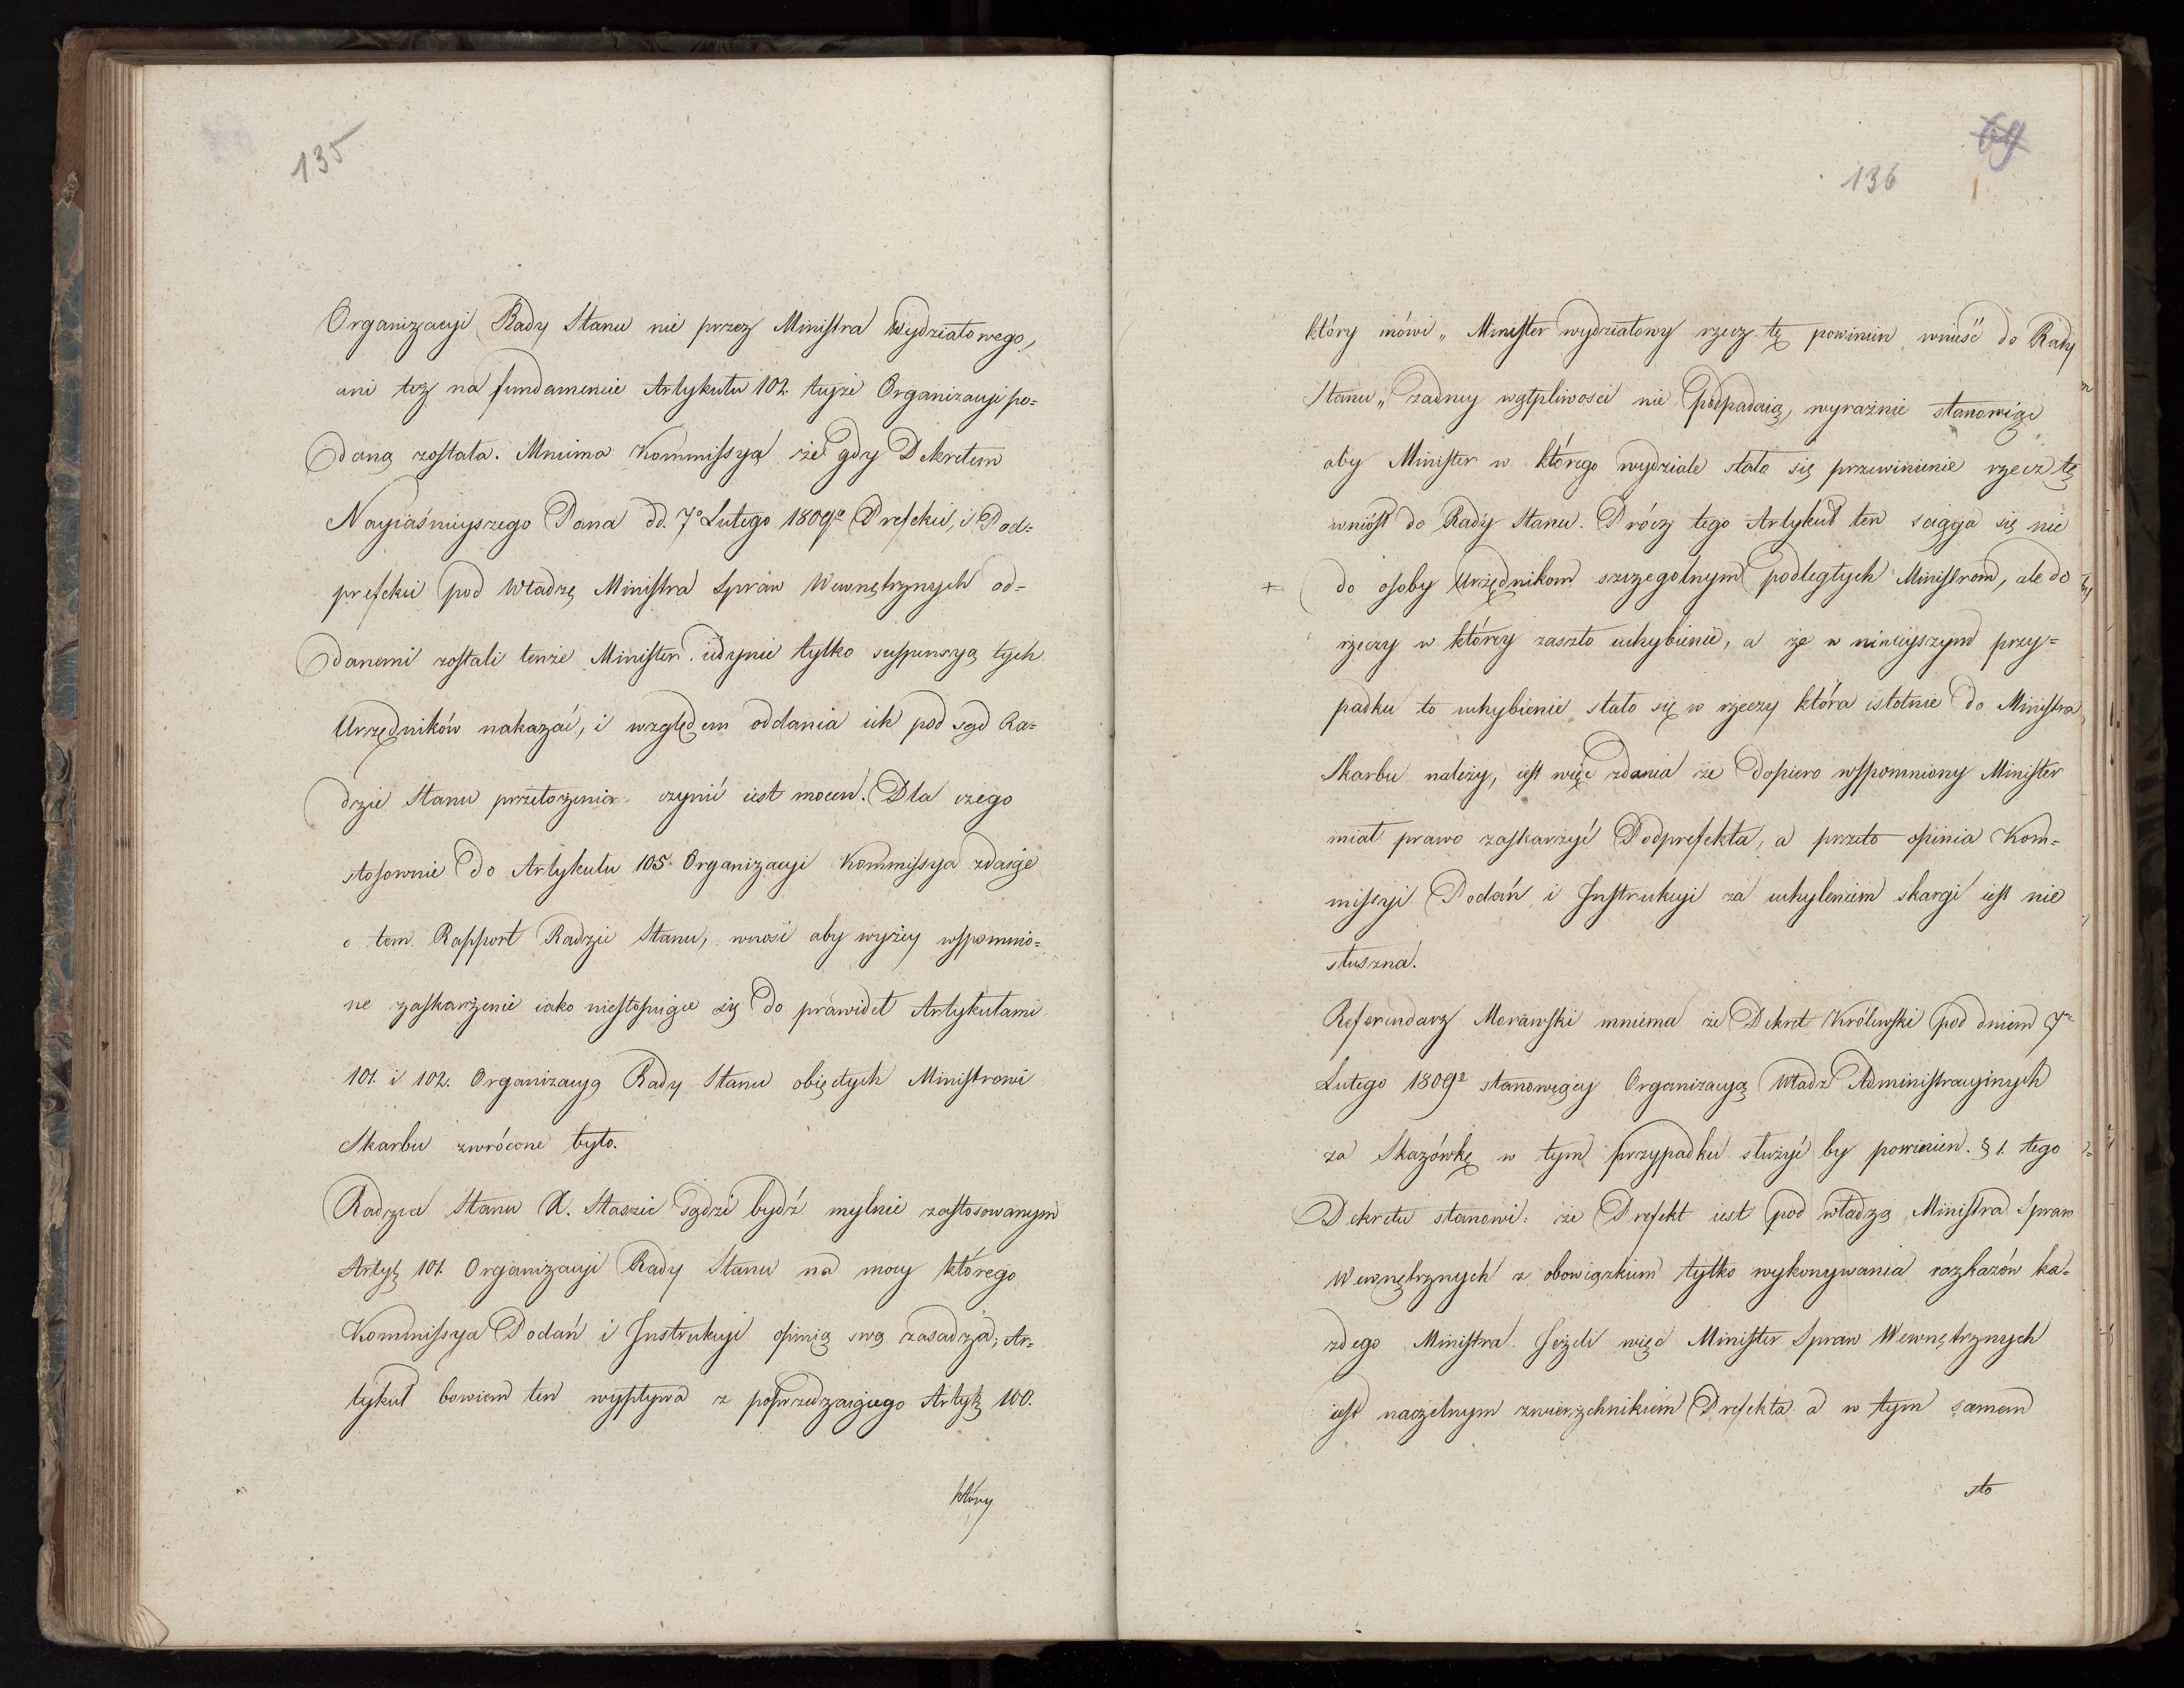 135
Organizacyi Rady Stanu nie przez Ministra wydziałowego,
ani też na fundamencie Artykułu 102. teyże Organizacyi po=
daną została. Mniema Kommissya że gdy Dekretem
Nayiaśnieyszego Pana dd. 7º Lutego 1809º Prefekci, i Pod=
prefekci pod Władzę Ministra Spraw Wewnętrznych od=
danemi zostali tenże Minister iedynie tylko suspensyą tych
Urzędników nakazać, i względem oddania ich pod sąd Ra=
dzie Stanu przełożenia czynić iest mocen. Dla czego
stosownie do Artykułu 105. Organizacyi Kommissya zdaiąc
o tem Rapport Radzie Stanu, wnosi aby wyżey wspomnio=
ne zaskarżenie iako niestosuiące się do prawideł Artykułami
101. i 102. Organizacyą Rady Stanu obiętych Ministrowi
Skarbu zwrócone było.
Radzca Stanu X. Staszic sądzi bydź mylnie zastosowanym
Artyk 101. Organizacyi Rady Stanu na mocy którego
Kommissya Podań i Instrukcyi opinią swą zasadza, Ar=
tykuł bowiem ten wypływa z poprzedzaiącego Artyk 100.
który
69
136
który mówi „ Minister wydziałowy rzecz tę powinien wnieść do Rady
Stanu „ żadney wątpliwości nie podpadaią, wyraźnie stanowiąc
aby Minister w którego wydziale stało się przewinienie rzecz tę
wniósł do Rady Stanu. Prócz tego Artykuł ten sciąga się nie
+ do osoby Urzędnikom szczegolnym podległych Ministrom, ale do
rzeczy w którey zaszło uchybienie, a że w ninieyszym przy=
padku to uchybienie stało się w rzeczy która istotnie do Ministra
Skarbu należy, iest więc zdania że dopiero wspomniony Minister
miał prawo zaskarżyć Podprefekta, a przeto opinia Kom=
missyi Podań i Instrukcyi za uchyleniem skargi iest nie
słuszna.
Referendarz Morawski mniema że Dekret Królewski pod dniem 7º
Lutego 1809º stanowiący Organizacyą Władz Administracyinych
za Skazówkę w tym przypadku służyć by powinien. § 1. tego
Dekretu stanowi: że Prefekt iest pod władzą Ministra Spraw
Wewnętrznych z obowiązkiem tylko wykonywania rozkazów ka=
żdego Ministra. Jeżeli więc Minister Spraw Wewnętrznych
iest naczelnym zwierzchnikiem Prefekta a w tym samem
sto